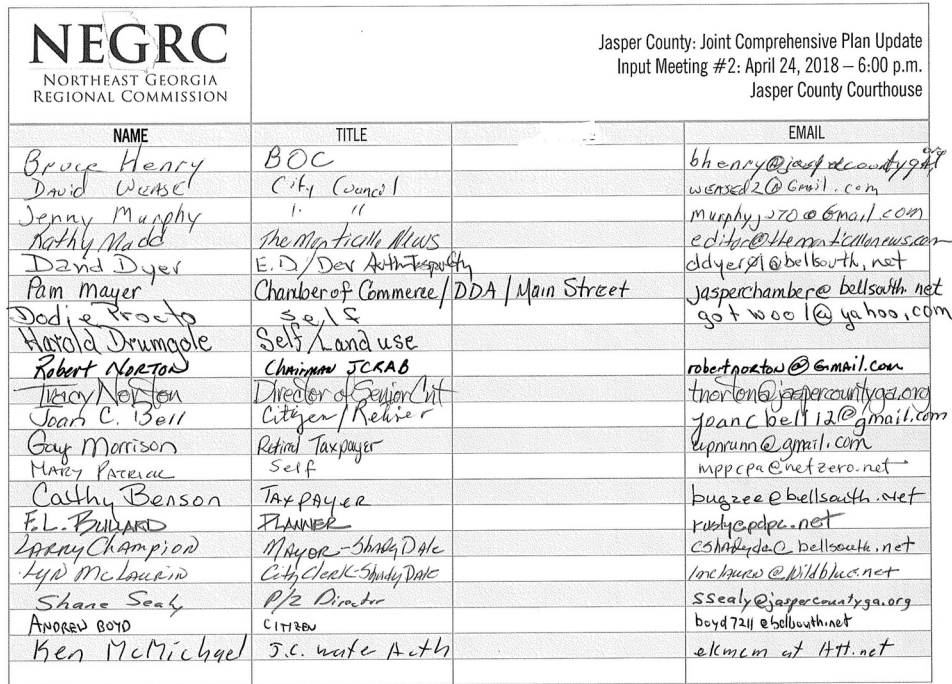 NEGRC
NORTHEAST GEORGIA
REGIONAL COMMISSION
Jasper County: Joint Comprehensive Plan Update
Input Meeting #2: April 24, 2018 – 6:00 p.m.
Jasper County Courthouse
NAME TITLE EMAIL
Bruce Henry BOC
David Wease City Council weased2@Gmail.com
Jenny Murphy " "
Kathy Mudd The Monticello News editor@themonticellonews.com
David Dyer E.D/Dev Auth ddyer01@bellsouth.net
Pam Mayer Chamber of Commerce/DDA/Main Street jasperchamber@bellsouth.net
Dodie Self gotwool@yahoo.com
Harold Drumgole Self/Land use
Robert Norton Chairman JCRAB robertnorton@Gmail.com
Tracy Norton Director of Senior Cnt tnorton@jaspercountyga.org
Joan C. Bell Citizen/Retiree joancbell12@gmail.com
Gay Morrison Retired Taxpayer
Mary Patrick Self mppcpa@netzero.net
Cathy Benson TAXPAYER bugzee@bellsouth.net
F.L. Bullard PLANNER rusty@pdpc.net
Larry Champion Mayor-Shady Dale
Lyn McLaurin City Clerk-Shady Dale
Shane Sealy P/Z Director ssealy@jaspercountyga.org
Andrew Boyd Citizen boyd7211@bellsouth.net
Ken McMichael J.C. Water Auth ekmcm at Att.net